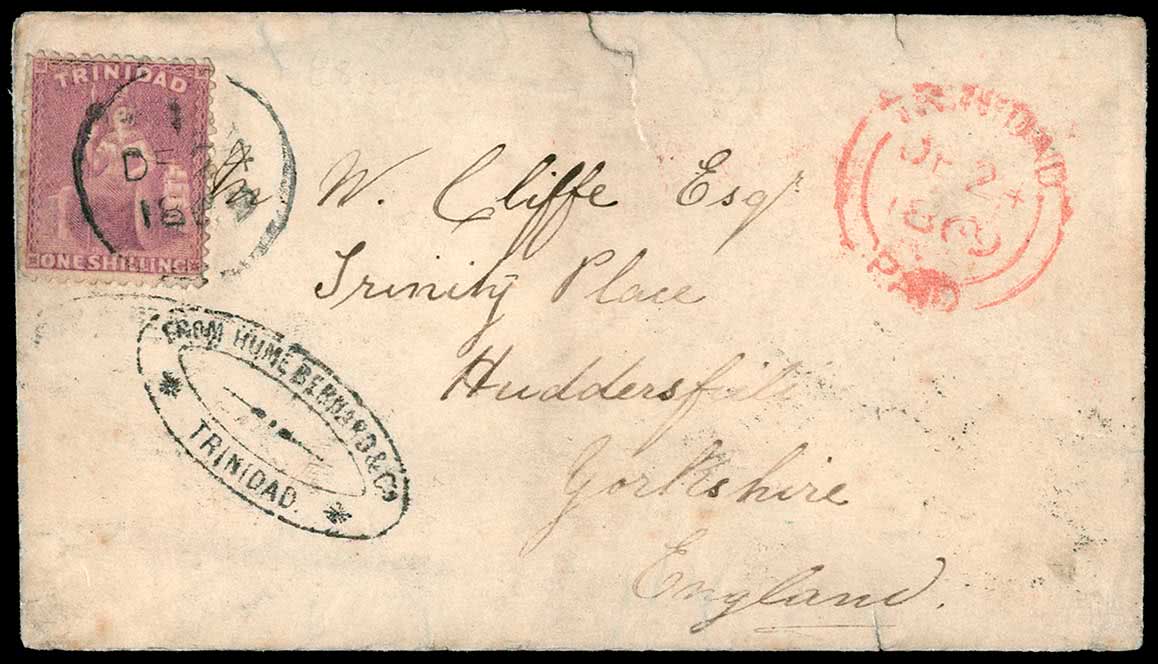 TRINIDAD
ONE SHILLING
1
DE 24
186
TRINIDAD
DE 24
1869
PAID
W. Cliffe Esqr
Trinity Place
Huddersfield
Yorkshire
England.
FROM HUME BERNARD & Co
TRINIDAD.